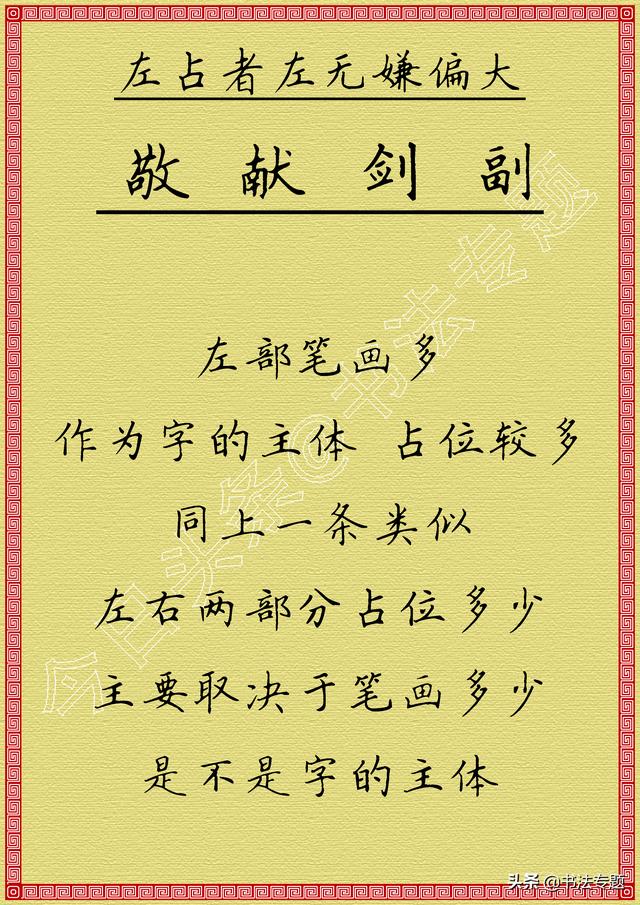 左占者左无嫌偏大
敬 献 剑 副
左部笔画多
作为字的主体 占位较多
同上一条类似
左右两部分占位多少
主要取决于笔画多少
是不是字的主体
今日头条@书法专题
头条 @书法专题